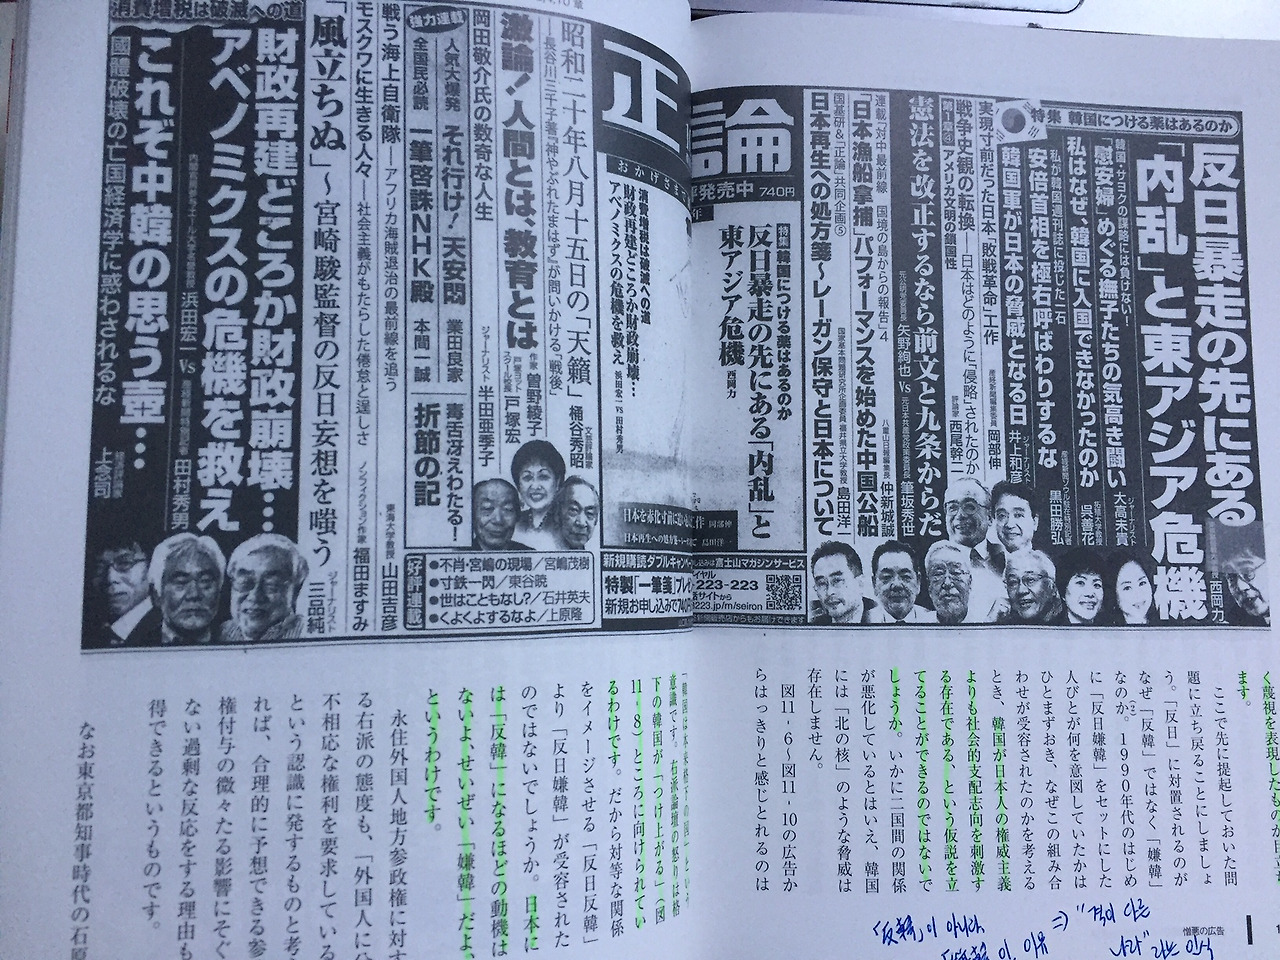 特集 韓国につける薬はあるのか
反日暴走の先にある
「内乱」と東アジア危機
西岡力
韓国・サヨクの謀略には負けない!
「慰安婦」めぐる撫子たちの気高き闘い
ジャーナリスト 大高未貴
私はなぜ、韓国に入国できなかったのか
拓殖大学教授 呉善花
私が韓国週刊誌に投じた一石
安倍首相を極右呼ばわりするな
黒田勝弘
韓国軍が日本の脅威となる日
ジャーナリスト 井上和彦
実現寸前だった日本「敗戦革命」工作
産経新聞編集委員 岡部伸
戦争史観の転換――日本はどのように「侵略」されたのか
第1章④ アメリカ文明の鎖国性
評論家 西尾幹二
憲法を改正するなら前文と九条からだ
元公明党委員長 矢野絢也 VS 元日本共産党政策委員長 筆坂秀世
連載「対中最前線 国境の島からの報告」4
「日本漁船拿捕」パフォーマンスを始めた中国公船
八重山日報編集長 仲新城誠
国基研&「正論」共同企画⑤
日本再生への処方箋~レーガン保守と日本について
国家基本問題研究所企画委員・福井県立大学教授 島田洋一
正論
発売中 740円
特集 韓国につける薬はあるのか
反日暴走の先にある「内乱」と
東アジア危機 西岡力
消費増税は破滅への道
財政再建どころか財政崩壊…
アベノミクスの危機を救え
浜田宏一 VS 田村秀男
富士山マガジンサービス
223-223
223.jp/m/seiron
新規購読ダブルキャンペ
特製「一筆箋」プレ
新規お申し込みで740
昭和二十年八月十五日の「天籟」
――長谷川三千子著『神やぶれたまはず』が問いかける「戦後」
文芸評論家 桶谷秀昭
激論!人間とは、教育とは
作家 曽野綾子
戸塚ヨットスクール校長 戸塚宏
岡田敬介氏の数奇な人生
ジャーナリスト 半田亜季子
強力連載
人気大爆発 それ行け!天安悶 業田良家
毒舌冴えわたる! 折節の記
全国民必読 一筆啓誅NHK殿 本間一誠
好評連載
●不肖・宮嶋の現場/宮嶋茂樹
●寸鉄一閃/東谷暁
●世はこともなし?/石井英夫
●くよくよするなよ/上原隆
戦う海上自衛隊――アフリカ海賊退治の最前線を追う
東海大学教授 山田吉彦
モスクワに生きる人々 社会主義がもたらした倦怠と逞しさ
ノンフィクション作家 福田ますみ
「風立ちぬ」~宮崎駿監督の反日妄想を嗤う
ジャーナリスト 三品純
消費増税は破滅への道
財政再建どころか財政崩壊…
アベノミクスの危機を救え
浜田宏一 VS 田村秀男
これぞ中韓の思う壺…
國體破壊の亡国経済学に惑わされるな
経済評論家 上念司
く蔑視を表現したものが目立ち
ます。
ここで先に提起しておいた問
題に立ち戻ることにしましょ
う。「反日」に対置されるのが
なぜ「反韓」ではなく「嫌韓」
なのか。1990年代のはじめ
に「反日嫌韓」をセットにした
人びとが何を意図していたかは
ひとまずおき、なぜこの組み合
わせが受容されたのかを考える
とき、韓国が日本人の権威主義
よりも社会的支配志向を刺激す
る存在である、という仮説を立
てることができるのではないで
しょうか。いかに二国間の関係
が悪化しているとはいえ、韓国
には「北の核」のような脅威は
存在しません。
図11-6~図11-10の広告か
らはっきりと感じとれるのは
「韓国は本来格下の国」という
意識です。右派論壇の怒りは格
下の韓国が「つけ上がる」(図
11-8)ところに向けられてい
るわけです。だから対等な関係
をイメージさせる「反日反韓」
より「反日嫌韓」が受容された
のではないでしょうか。日本に
は「反韓」になるほどの動機は
ないよ、せいぜい「嫌韓」だよ、
というわけです。
永住外国人地方参政権に対す
る右派の態度も、「外国人に分
不相応な権利を要求している」
という認識に発するものと考
れば、合理的に予想できる参
権付与の微々たる影響にそぐ
ない過剰な反応をする理由も
得できるというものです。
なお東京都知事時代の石原
憎悪の広告
「反韓」이 아니라
⇒ "격이 다른
나라"라는 인식